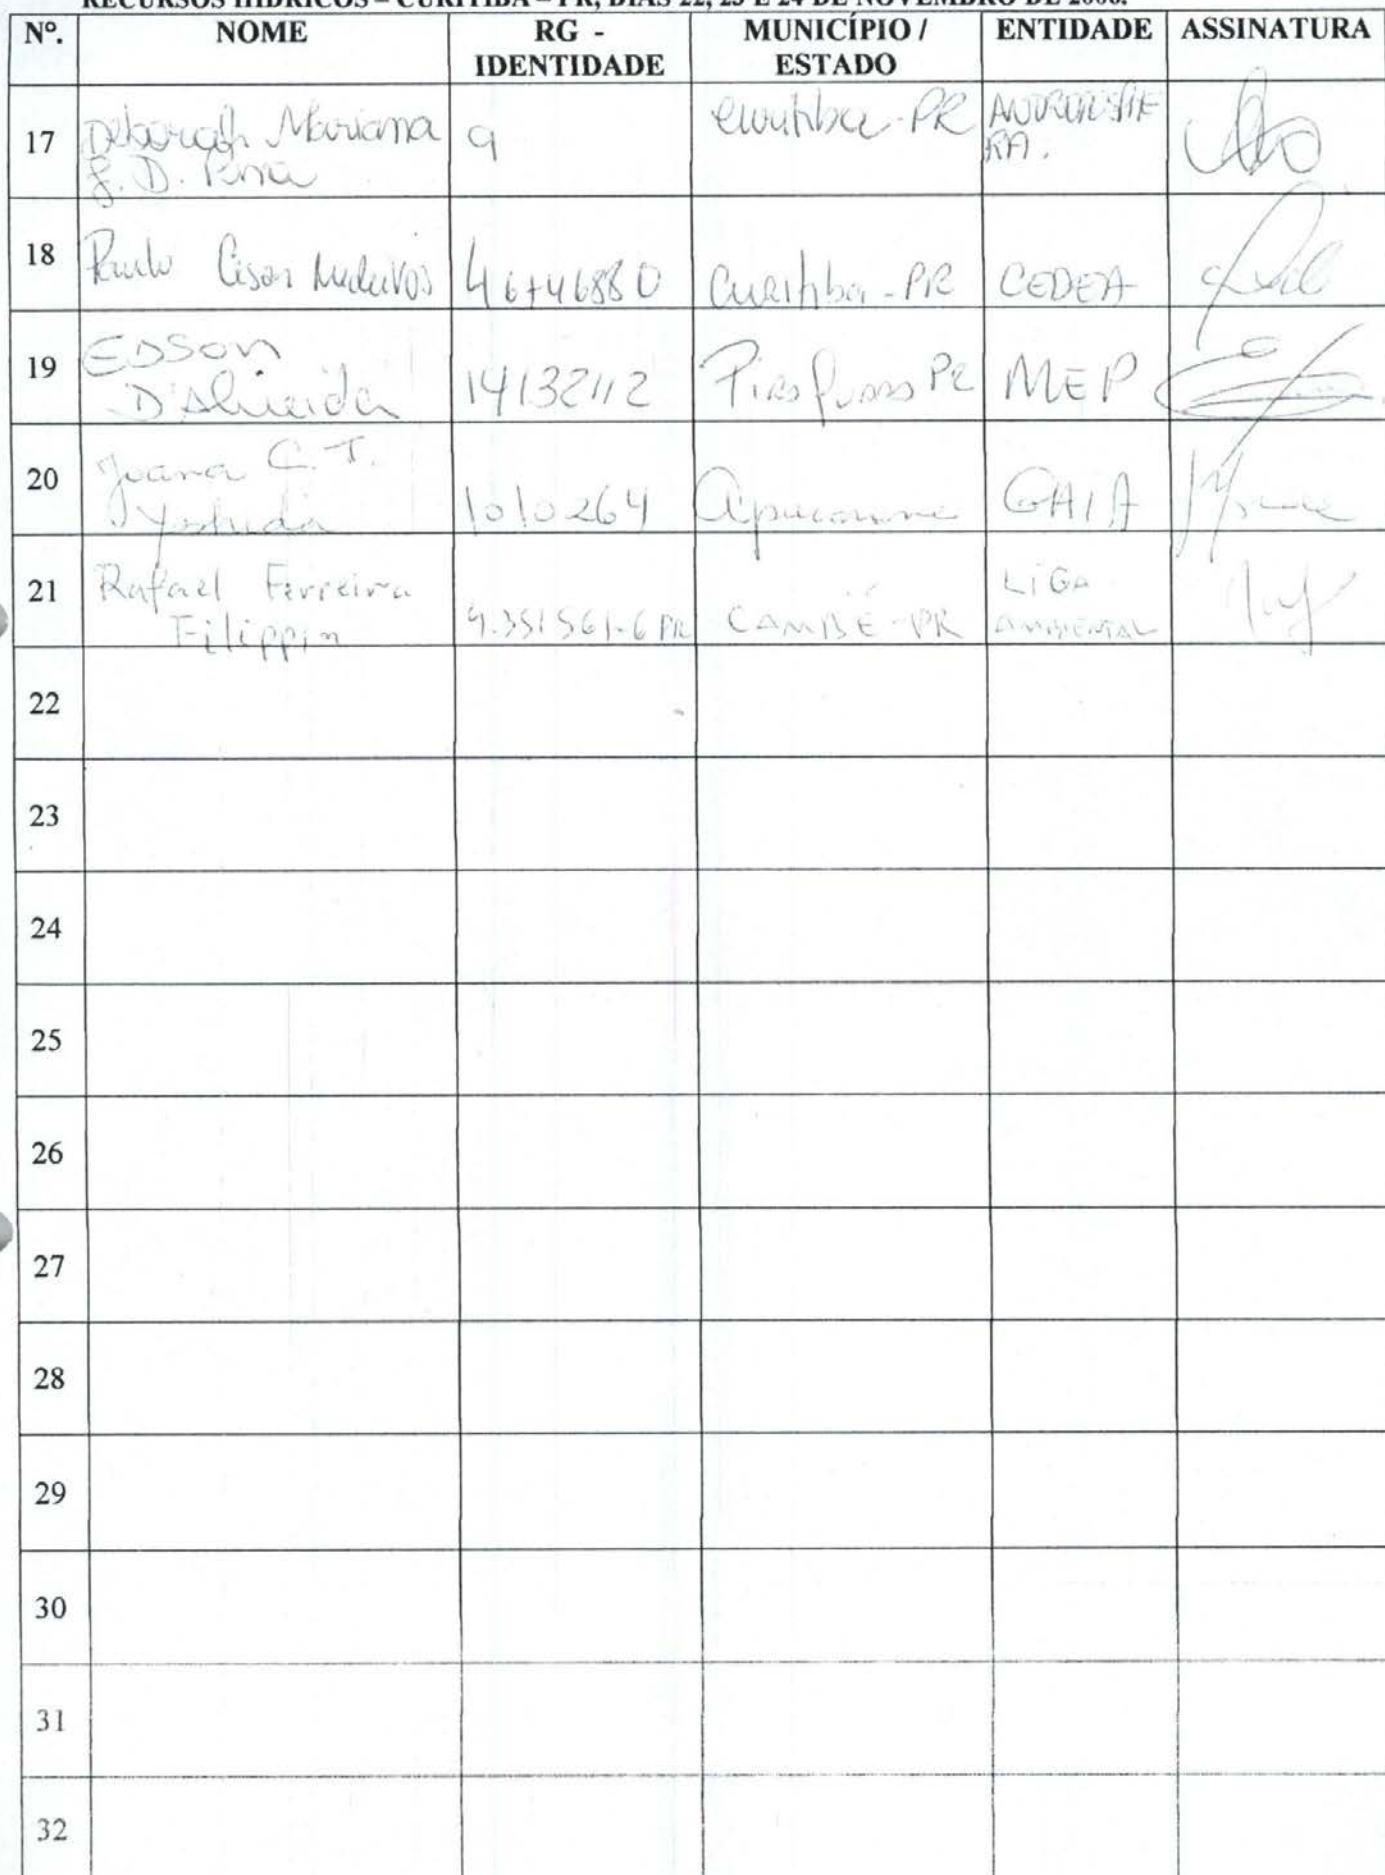 RECURSOS HÍDRICOS – CURITIBA – PR, DIAS 22, 23 E 24 DE NOVEMBRO DE 2006.
Nº. NOME RG - IDENTIDADE MUNICÍPIO / ESTADO ENTIDADE ASSINATURA
17 Deborah Mariana
Curitiba-PR
18 Paulo Cesar Medeiros 46746880 Curitiba-PR CEDEA
19 EDSON
D'Almeida 14132112 PR MEP
20 Joana C. T.
Yoshida 1010264 Apucarana GAIA
21 Rafael Ferreira
Filippin 4.351561-6 PR CAMBÉ-PR LIGA
AMBIENTAL
22
23
24
25
26
27
28
29
30
31
32